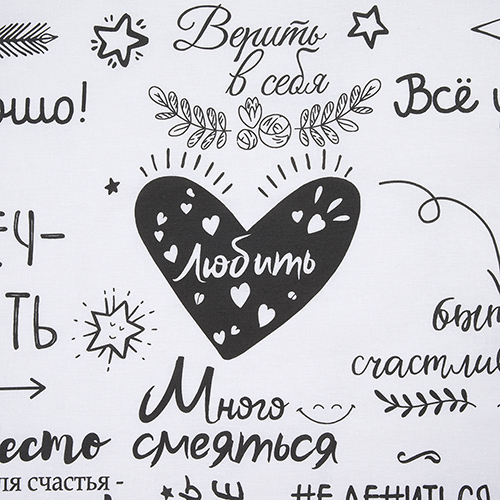 Верить
в себя
Всё
Любить
быт
счастлив
Много
смеяться
ля счастья -
#НЕ ЛЕНИТЬСЯ